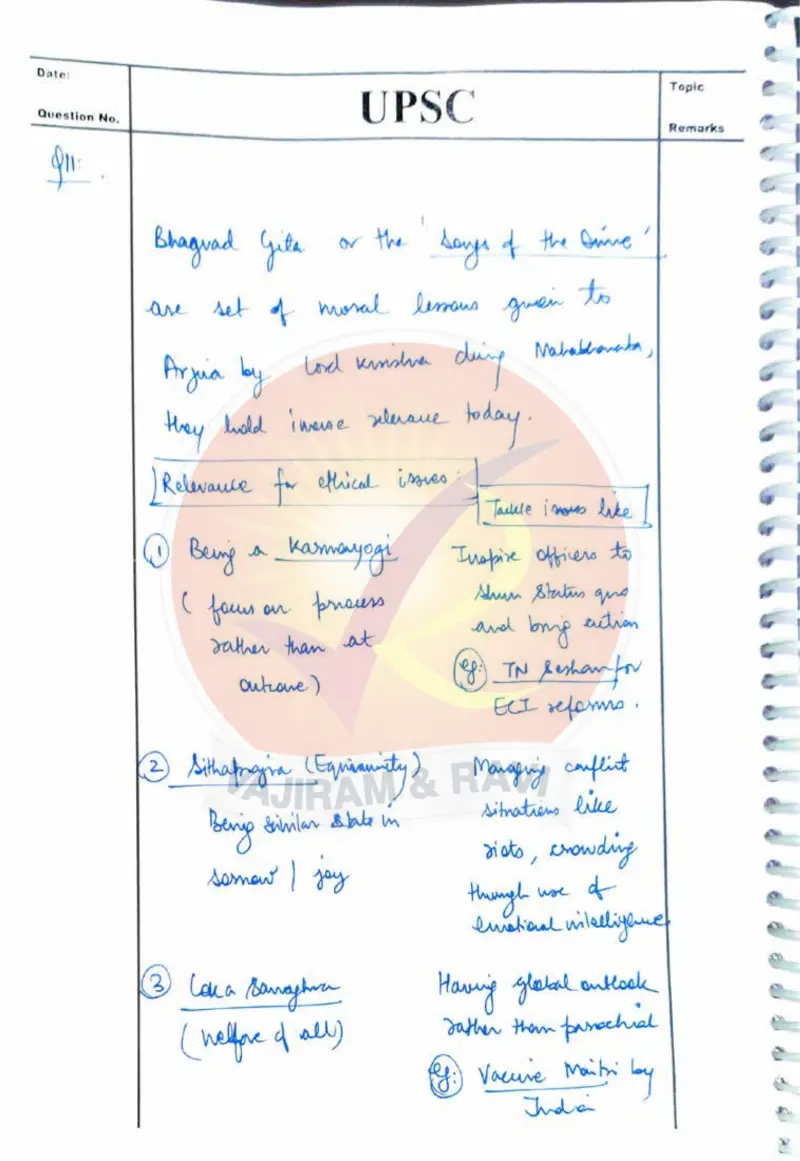 Date:
Question No.
UPSC
Topic
Remarks
Q11:
Bhagvad Gita or the 'Songs of the Divine'
are set of moral lessons given to
Arjuna by Lord Krishna during Mahabharata,
they hold immense relevance today.
Relevance for ethical issues:
Tackle issues like
① Being a Karmayogi
( focus on process
rather than at
outcome)
Inspire officers to
shun status quo
and bring action
eg: TN Seshan for
ECI reforms.
② Sithapragna (Equanimity)
Being similar state in
sorrow / joy
Managing conflict
situations like
riots, crowding
through use of
emotional intelligence
③ Loka Sangraha
(Welfare of all)
Having global outlook
rather than parochial
eg: Vaccine Maitri by
India
VAJIRAM & RAVI